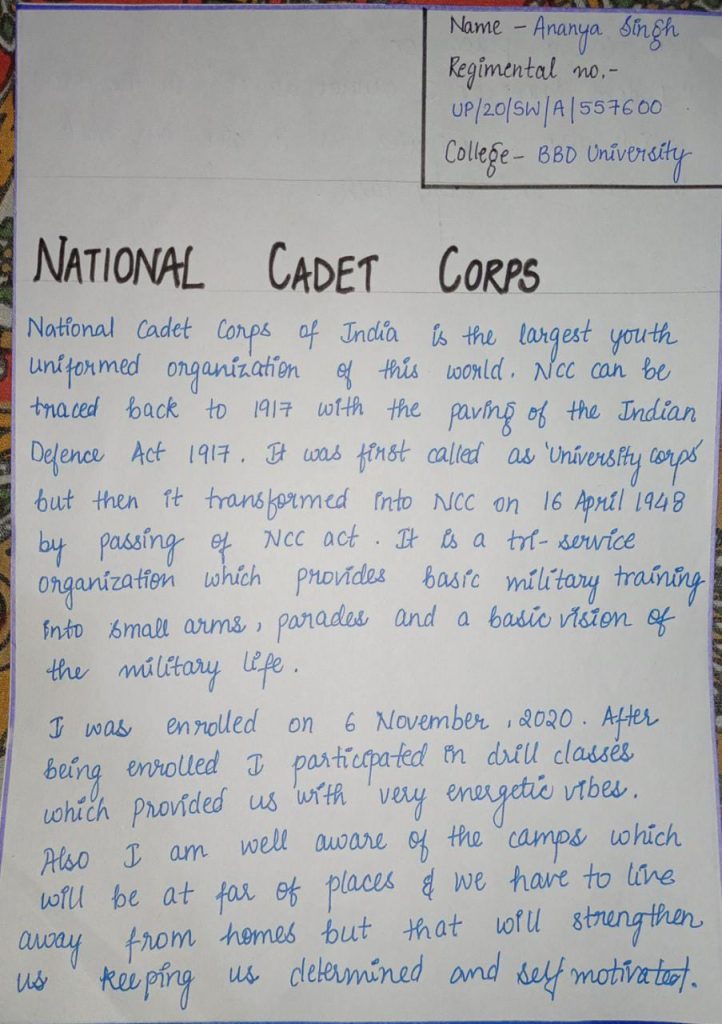 Name - Ananya Singh
Regimental no.-
UP/20/SW/A/557600
College - BBD University
NATIONAL CADET CORPS
National Cadet Corps of India is the largest youth
uniformed organization of this world. NCC can be
traced back to 1917 with the paving of the Indian
Defence Act 1917. It was first called as 'University corps'
but then it transformed into NCC on 16 April 1948
by passing of NCC act. It is a tri-service
organization which provides basic military training
into small arms, parades and a basic vision of
the military life.
I was enrolled on 6 November, 2020. After
being enrolled I participated in drill classes
which provided us with very energetic vibes.
Also I am well aware of the camps which
will be at far of places & we have to live
away from homes but that will strengthen
us keeping us determined and self motivated.